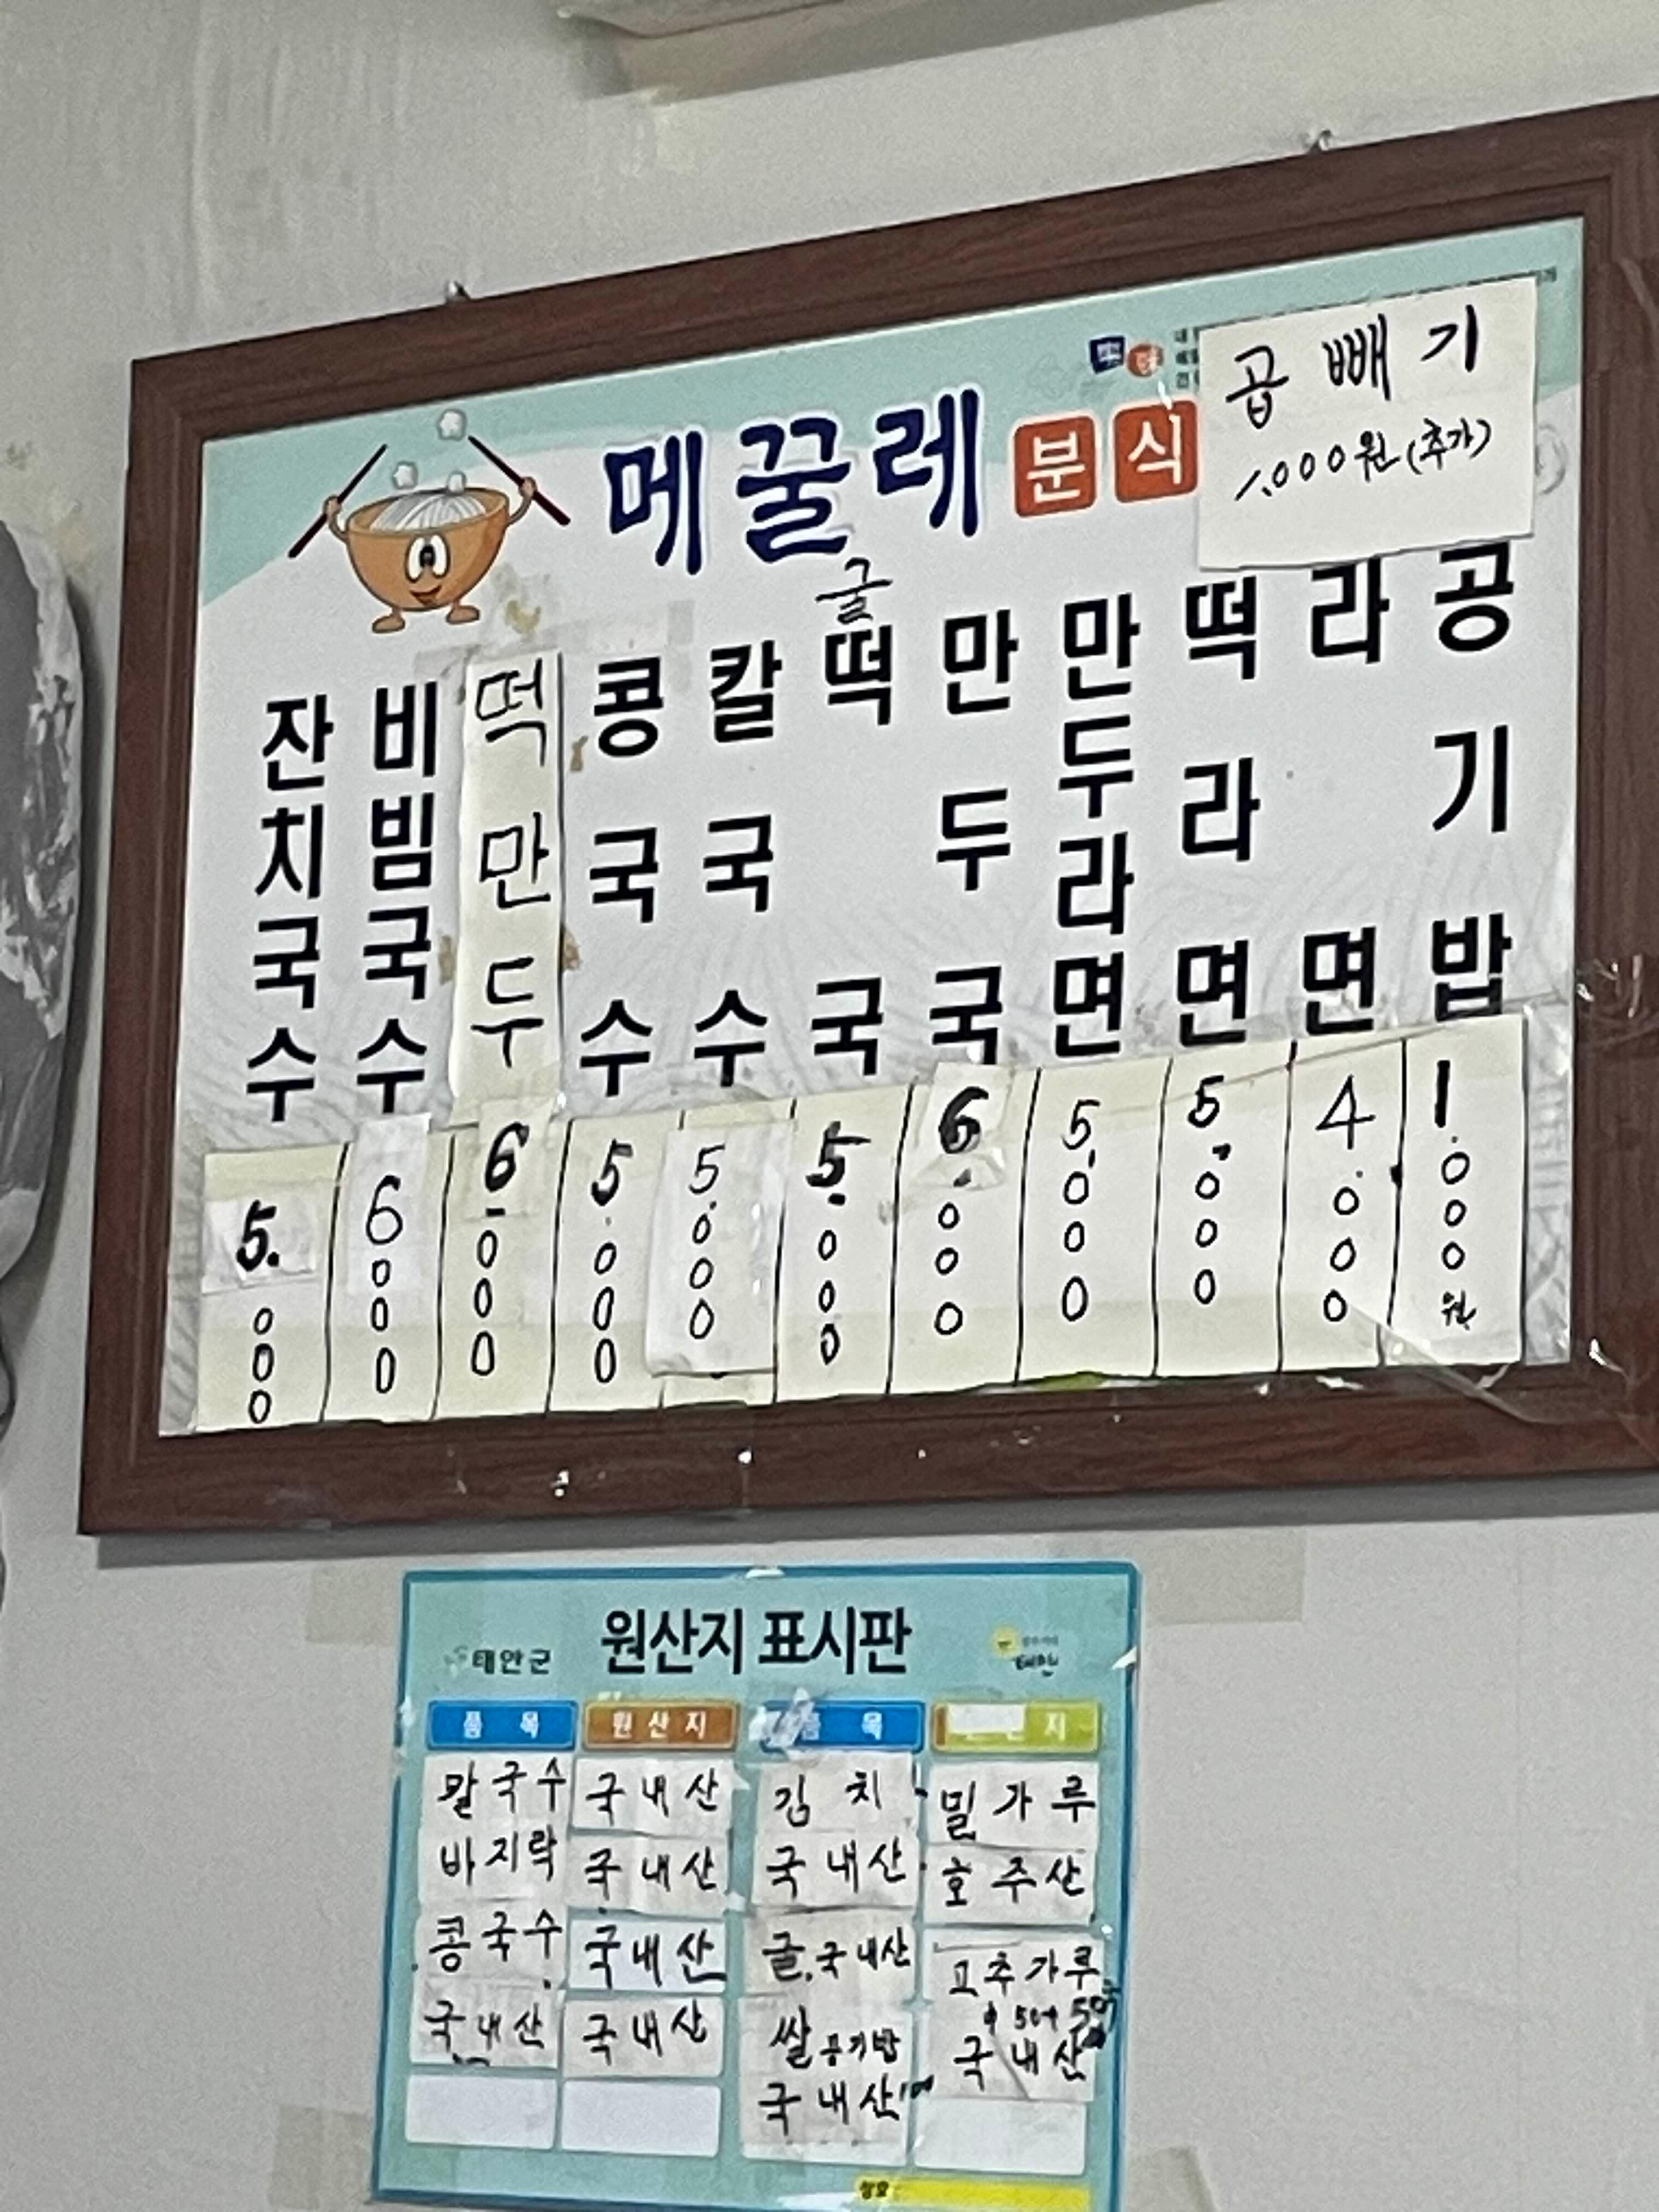 메꿀레 분식
곱빼기
1,000원(추가)
잔치국수 5.000
비빔국수 6000
떡만두 6.000
콩국수 5.000
칼국수 5.000
굴떡국 5.000
만두국 6.000
만두라면 5.000
떡라면 5.000
라면 4.000
공기밥 1.000원
태안군 원산지 표시판 태안
품목 원산지 품목 지
칼국수 국내산 김치 밀가루
바지락 국내산 국내산 호주산
콩국수 국내산 굴.국내산 고추가루
국내산 국내산 쌀 공기밥 국내산
국내산